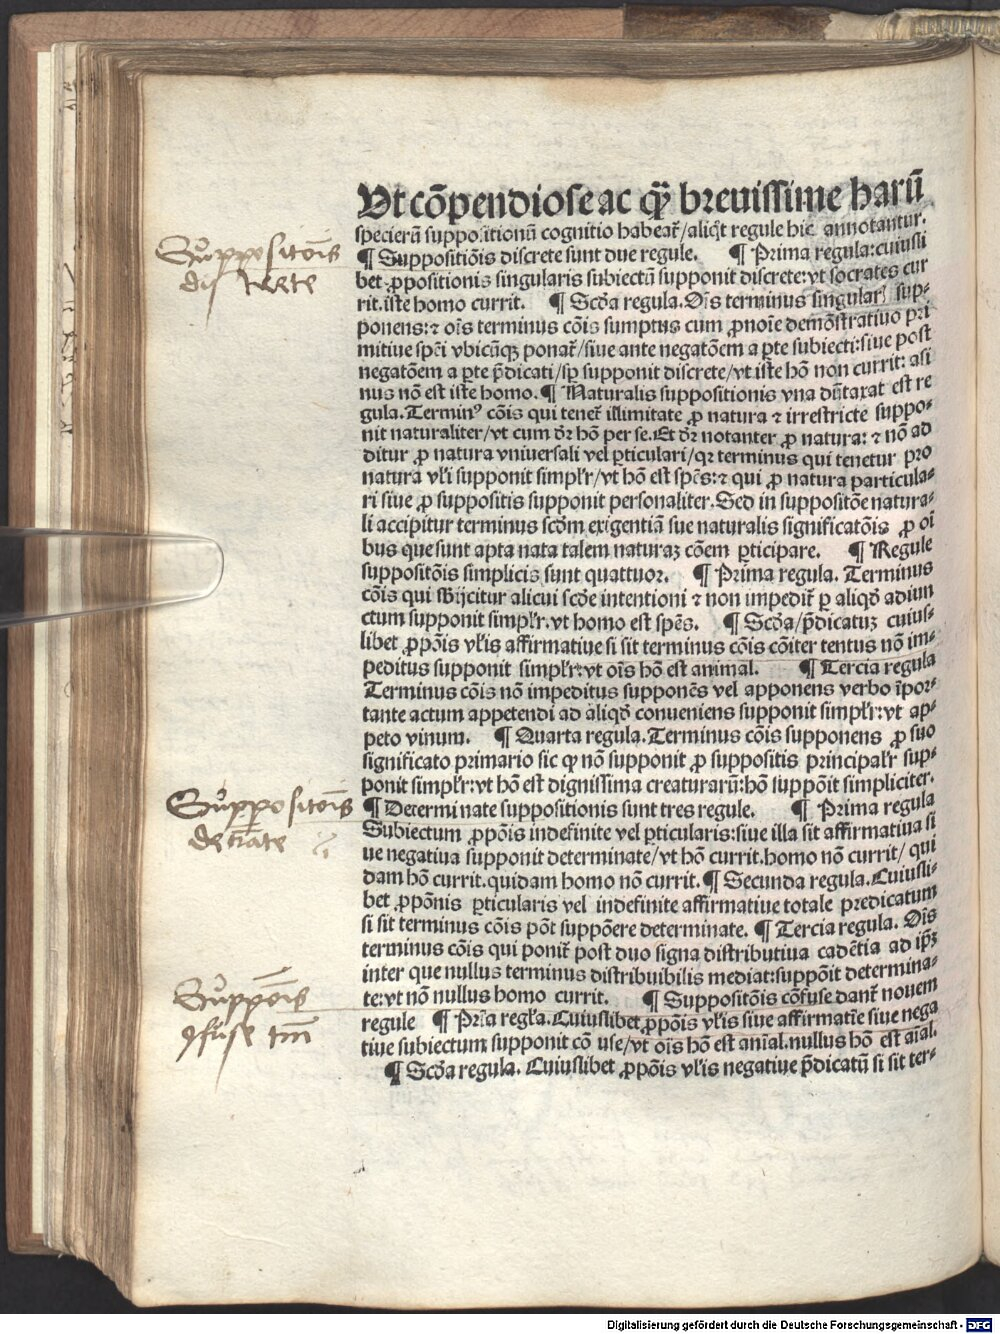 Ut cōpendiose ac qȝ breuissime harū
specierū suppositionū cognitio habeat̄/aliq̄t regule hic annotantur.
¶ Suppositiōis discrete sunt due regule. ¶ Prima regula: cuiusli
bet ꝓpositionis singularis subiectū supponit discrete: vt socrates cur
rit. iste homo currit. ¶ Scđa regula. Oīs terminus singularꝭ sup⸗
ponens: ⁊ oīs terminus cōis sumptus cum ꝓnoīe demōstratiuo pri
mitiue spēi vbicūqꝫ ponat̄/siue ante negatōem a ꝑte subiecti: siue post
negatōem a ꝑte p̄dicati/sꝑ supponit discrete/vt iste hō non currit: asi
nus nō est iste homo. ¶ Naturalis suppositionis vna dūtaxat est re
gula. Terminꝰ cōis qui tenet̄ illimitate ꝓ natura ⁊ irrestricte suppo⸗
nit naturaliter/vt cum dr̄ hō per se. Et dr̄ notanter ꝓ natura: ⁊ nō ad
ditur ꝓ natura vniuersali vel ꝑticulari/qꝛ terminus qui tenetur pro
natura vl̄i supponit simpl̄r/vt hō est spēs: ⁊ qui ꝓ natura particula⸗
ri siue ꝓ suppositis supponit personaliter. Sed in suppositōe natura⸗
li accipitur terminus scđm exigentiā sue naturalis significatōis ꝓ oī
bus que sunt apta nata talem naturaꝫ cōem ꝑticipare. ¶ Regule
suppositōis simplicis sunt quattuor. ¶ Prima regula. Terminus
cōis qui sb̄ijcitur alicui scđe intentioni ⁊ non impedit̄ ꝑ aliqđ adiun
ctum supponit simpl̄r. vt homo est spēs. ¶ Scđa/p̄dicatuꝫ cuius⸗
libet ꝓpōis vl̄is affirmatiue si sit terminus cōis cōiter tentus nō im⸗
peditus supponit simpl̄r: vt oīs hō est animal. ¶ Tercia regula
Terminus cōis nō impeditus supponēs vel apponens verbo īpor⸗
tante actum appetendi ad aliqđ conueniens supponit simpl̄r: vt ap⸗
peto vinum. ¶ Quarta regula. Terminus cōis supponens ꝓ suo
significato primario sic ꝙ nō supponit ꝓ suppositis principal̄r sup⸗
ponit simpl̄r: vt hō est dignissima creaturarū: hō suppōit simpliciter.
¶ Determinate suppositionis sunt tres regule. ¶ Prima regula
Subiectum ꝓpōis indefinite vel ꝑticularis: siue illa sit affirmatiua si
ue negatiua supponit determinate/vt hō currit. homo nō currit/ qui
dam hō currit. quidam homo nō currit. ¶ Secunda regula. Cuiusli⸗
bet ꝓpōnis ꝑticularis vel indefinite affirmatiue totale predicatum
si sit terminus cōis pōt suppōere determinate. ¶ Tercia regula. Oīs
terminus cōis qui ponit̄ post duo signa distributiua cadētia ad ip̄ꝫ
inter que nullus terminus distribuibilis mediat: suppōit determina⸗
te: vt nō nullus homo currit. ¶ Suppositōis cōfuse dant̄ nouem
regule ¶ Pr̄īa regl̄a. Cuiuslibet ꝓpōis vl̄is siue affirmatīe siue nega
tiue subiectum supponit cō use/vt oīs hō est anīal. nullus hō est aīal.
¶ Scđa regula. Cuiuslibet ꝓpōis vl̄is negatiue p̄dicatū si sit ter⸗
Suppositōis
discrete
Suppositōis
determīate
Suppōis
ꝯfuse tm̄
Digitalisierung gefördert durch die Deutsche Forschungsgemeinschaft - DFG